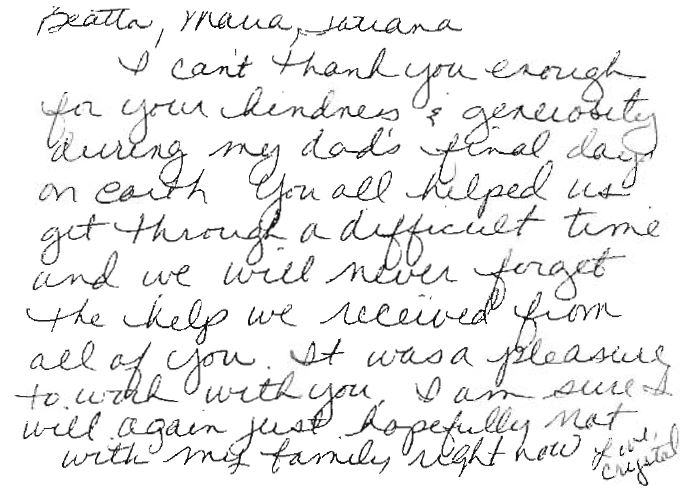 Beatta, Maria, Tatiana
I can't thank you enough
for your kindness & generiosity
during my dad's final days
on earth You all helped us
get through a difficult time
and we will never forget
the help we received from
all of you. It was a pleasure
to work with you. I am sure I
will again just hopefully not
with my family right now
Love,
Crystal